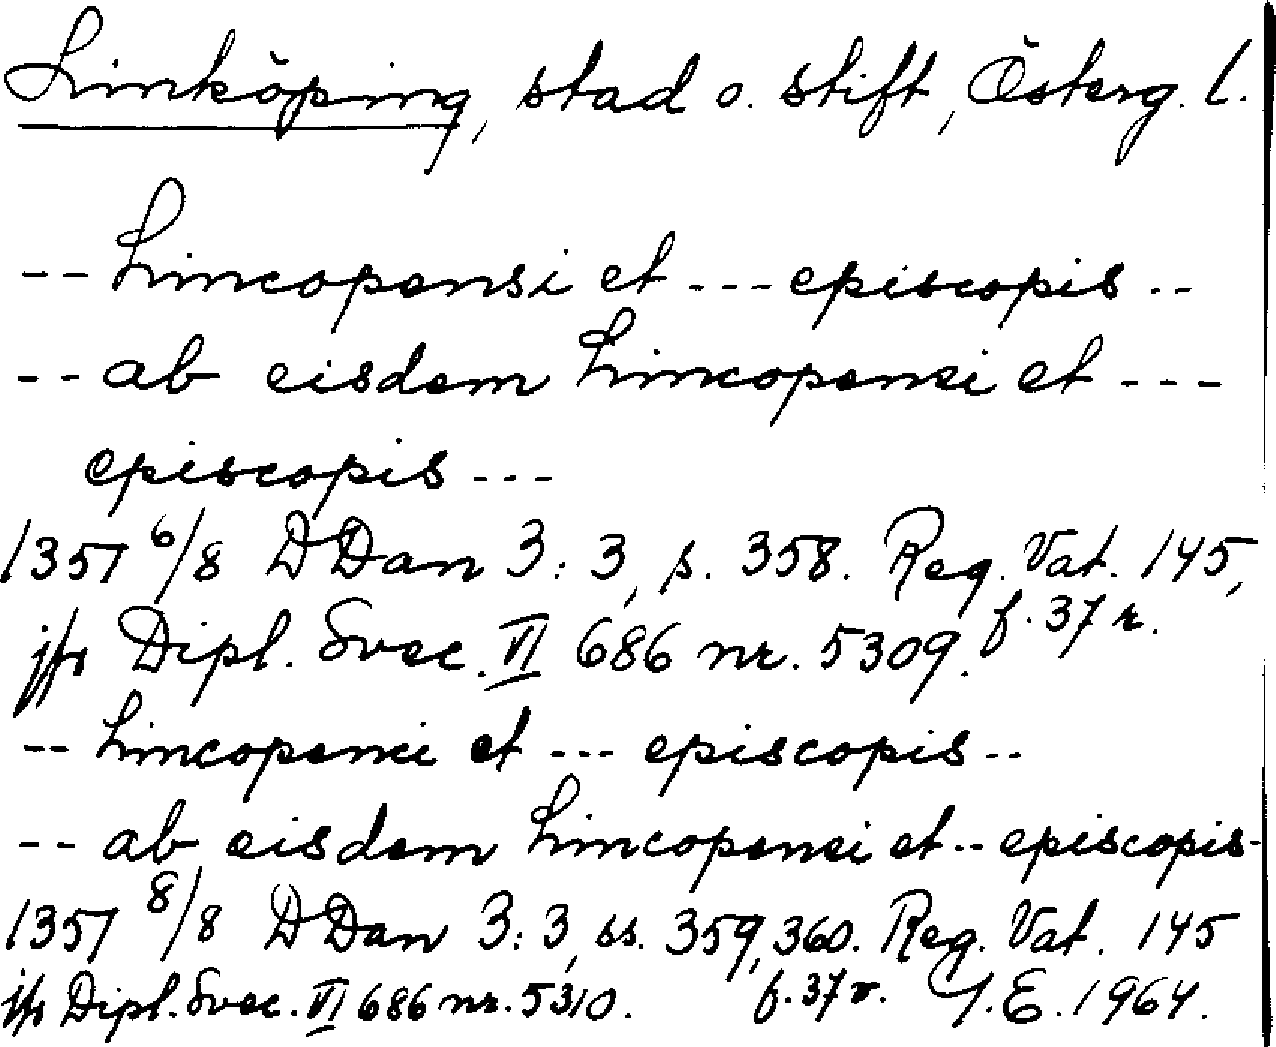 Linköping, stad o. stift, Österg. l.
-- Lincopensi et --- episcopis --
-- ab eisdem Lincopensi et ---
episcopis ---
1351 6/8 DDan 3:3, s. 358. Reg. Vat. 145,
f. 37 r.
jfr Dipl. Svec. VI 686 nr. 5309.
-- Lincopensi et --- episcopis --
-- ab eisdem Lincopensi et -- episcopis -
1351 8/8 DDan 3:3, ss. 359, 360. Reg. Vat. 145
jfr Dipl. Svec. VI 686 nr. 5310. f. 37 v. E. 1964.